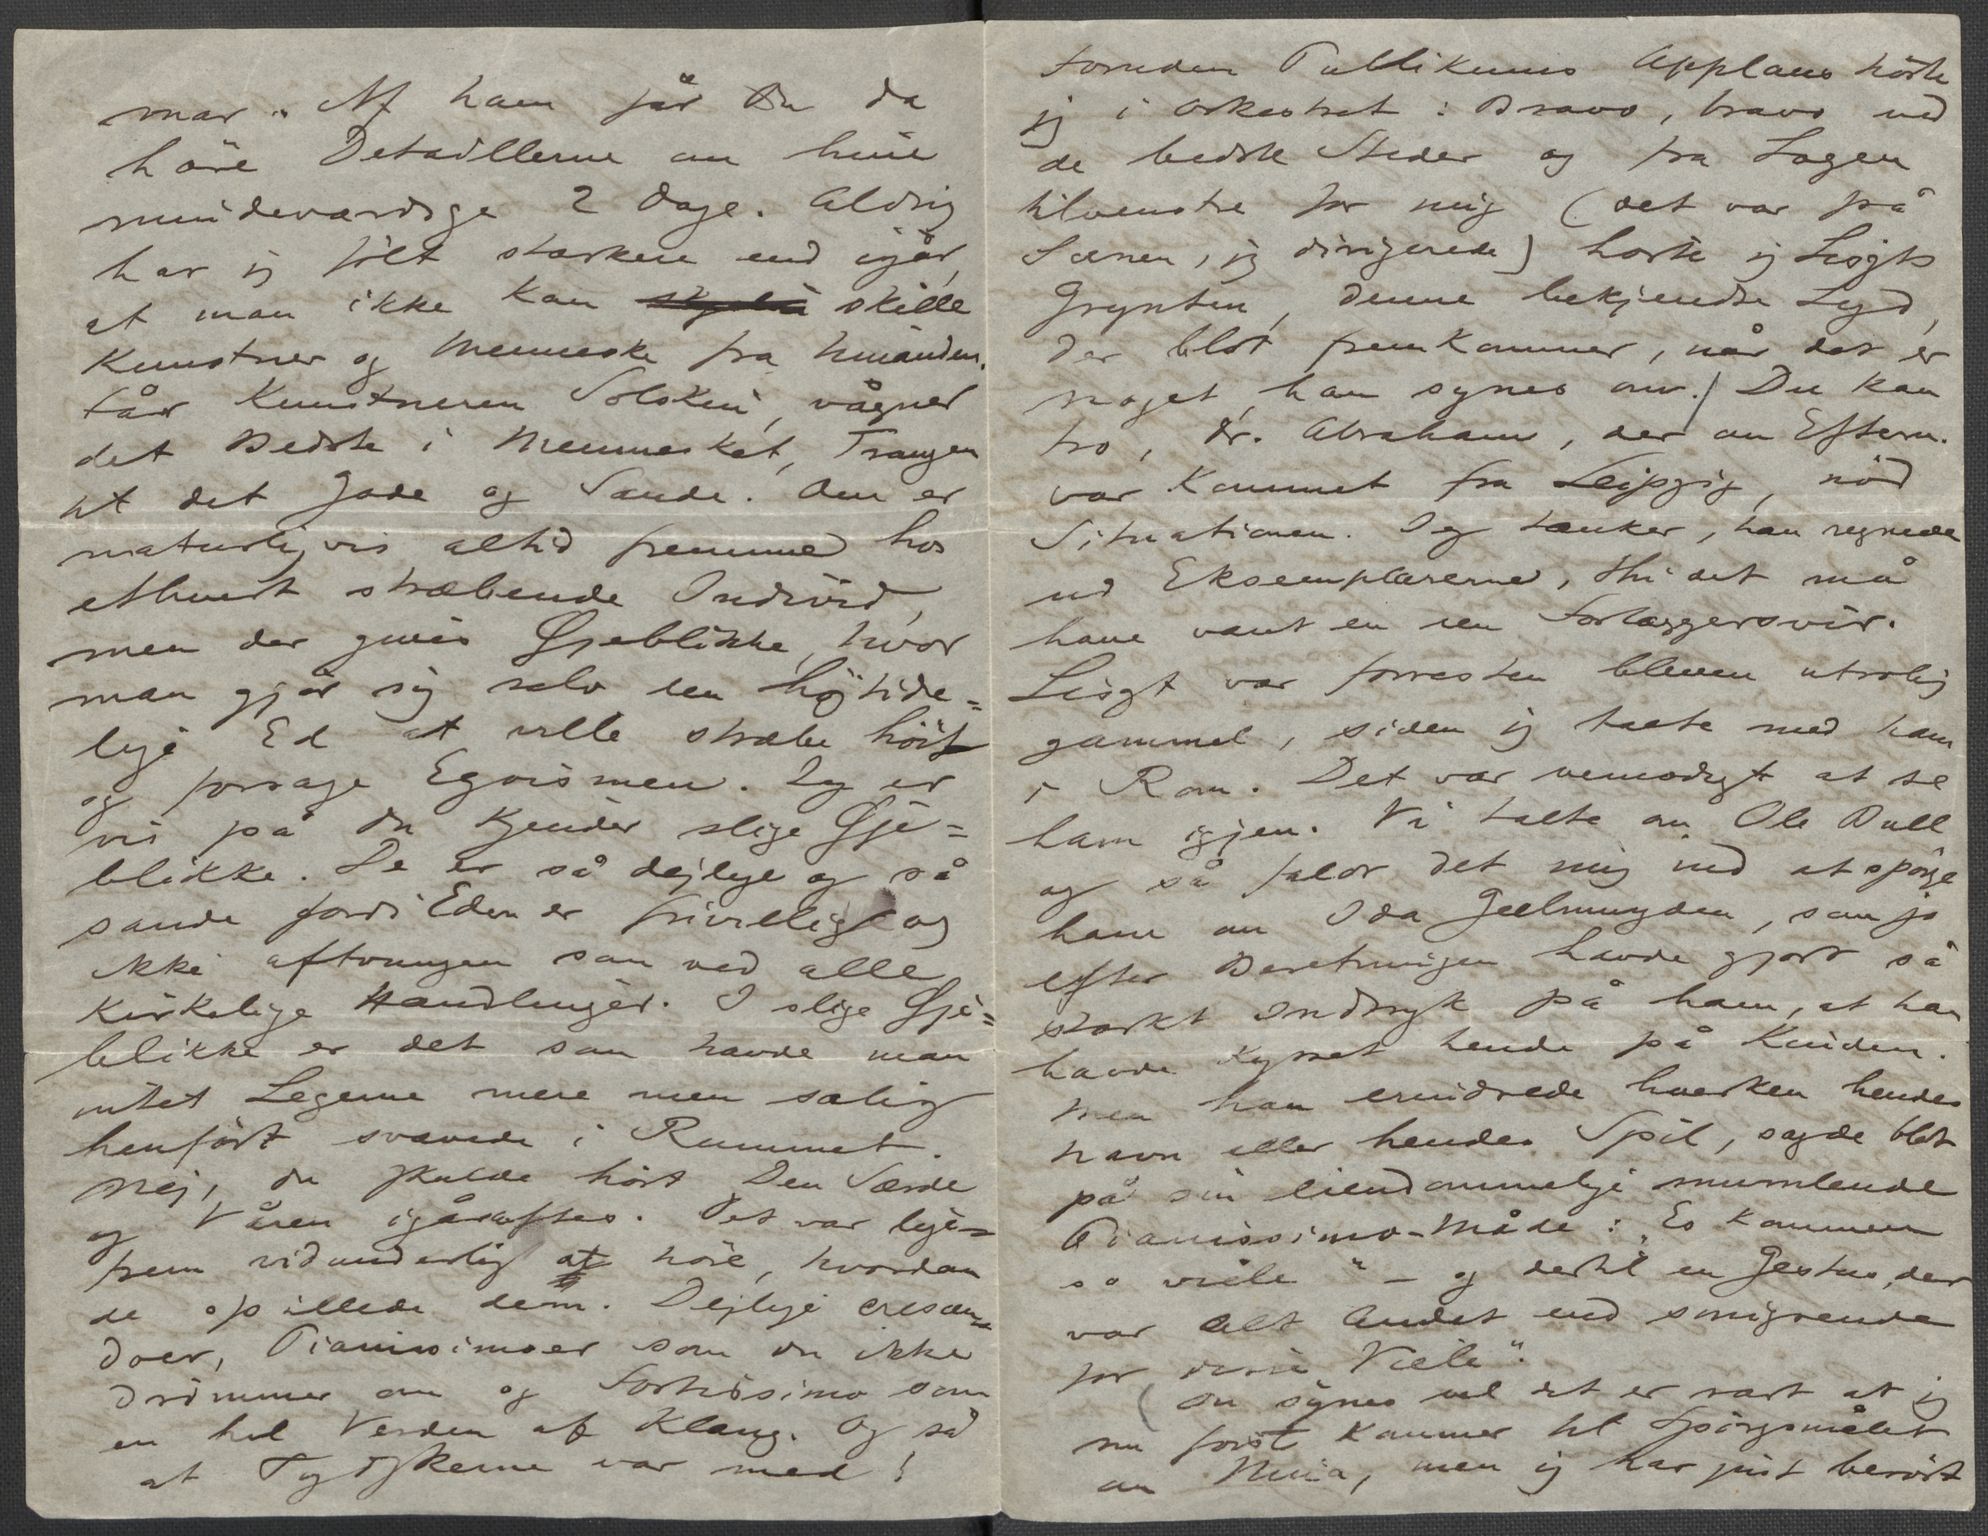 mar. Af ham får Du da
høre Detaillerne om hine
mindeværdige 2 Dage. Aldrig
har jeg følt stærkere end igår,
at man ikke kan skille
Kunstner og Menneske fra hinanden.
Får Kunstneren Solskin, vågner
det Bedste i Mennesket, Trangen
til det Gode og Sande. Den er
naturligvis altid fremme hos
ethvert stræbende Individ,
men der gives Øjeblikke, hvor
man gjør sig selv en højtide=
lige Ed at ville stræbe høit
og forsage Egoismen. Jeg er
vis på du kjender slige Øje=
blikke. De er så dejlige og så
sande fordi Eden er frivillig og
ikke aftvungen som ved alle
kirkelige Handlinger. I slige Øje=
blikke er det som havde man
intet Legeme mere men salig
henført svævede i Rummet.
Nej, du skulde hørt Den Særde
og Våren igåraftes. Det var lige=
frem vidunderlig at høre, hvordan
de spillede dem. Dejlige crescen=
doer, Pianissimoer som du ikke
drømmer om og Fortissimo som
en hel Verden af Klang. Og så
at Tydskerne var med!
Foruden Publikums Applaus hørte
jeg i Orkestret: Bravo, bravo ved
de bedste Steder og fra Logen
tilvenstre for mig (det var på
Scenen, jeg dirigerede) hørte jeg Liszts
Grynten, denne bekjendte Lyd,
der blot fremkommer, når det er
noget, han synes om. Du kan
tro, Dr. Abraham, der om Efterm.
var kommet fra Leipzig, nød
Situationen. Jeg tænker, han regnede
ud Eksemplarerne, thi det må
have vært en ren Forlæggersvir.
Liszt var forresten bleven utrolig
gammel, siden jeg talte med ham
i Rom. Det var vemodigt at se
ham igjen. Vi talte om Ole Bull
og så faldt det mig ind at spørge
ham om Ida Geelmuyden, som jo
efter Beretningen havde gjort så
stærkt Indtryk på ham, at han
havde kysset hende på Kinden.
Men han erindrede hverken hendes
Navn eller hendes Spil, sagde blot
på sin eiendommelige mumlende
Pianissimo-Måde: "Es kommen
so viele" – og dertil en Gestus, der
var alt Andet end smigrende
for disse "Viele".
(Du synes vel det er rart at jeg
nu først kommer til Spørgsmålet
om Nina, men jeg har just berørt